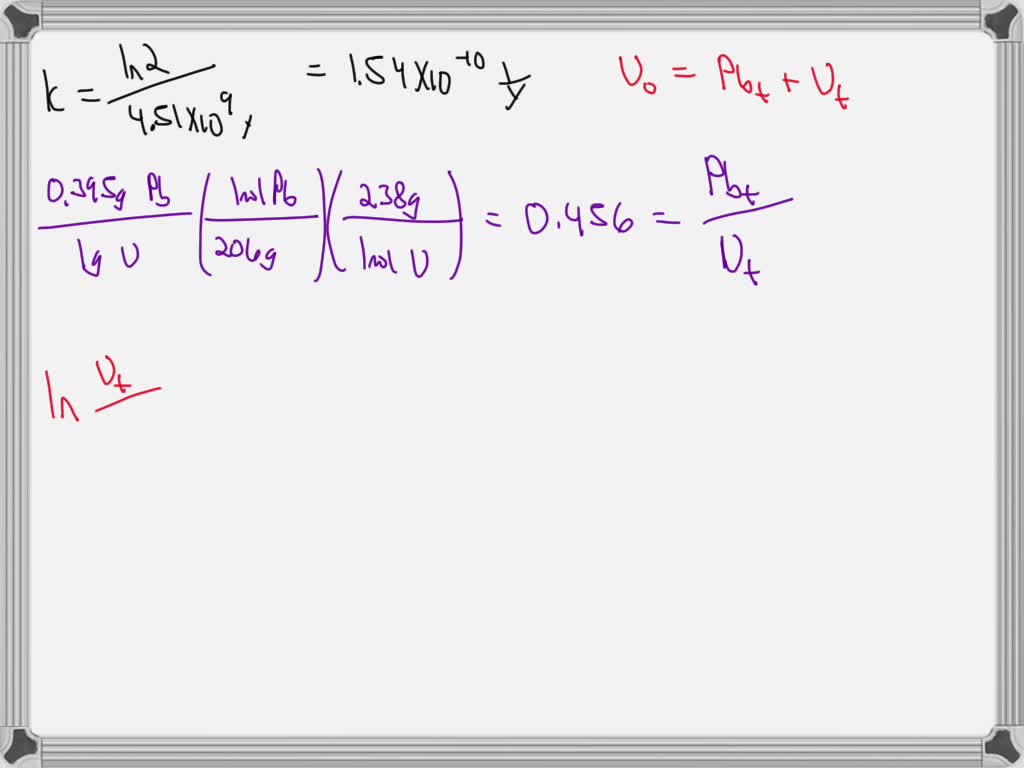 k = ln2 / 4.51×10^9 y = 1.54×10^-10 1/y U_0 = Pb_t + U_t
0.395g Pb / 1g U (1mol Pb / 206g)(238g / 1mol U) = 0.456 = Pb_t / U_t
ln U_t /